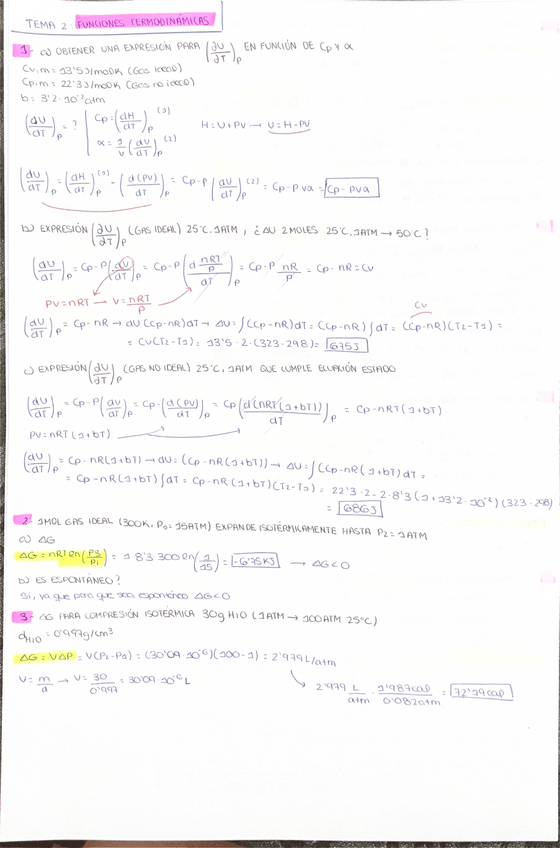 TEMA 2: FUNCIONES TERMODINÁMICAS
1- a) OBTENER UNA EXPRESIÓN PARA (∂U/∂T)p EN FUNCIÓN DE Cp Y α
Cv,m = 13'5 J/molK (Gas ideal)
Cp,m = 22'3 J/molK (Gas no ideal)
b = 3'2·10⁻² atm
(dU/dT)p = ? | Cp = (dH/dT)p (1) H = U + PV → U = H - PV
α = 1/V (dV/dT)p (2)
(dU/dT)p = (dH/dT)p (1) - (d(PV)/dT)p = Cp - P (dV/dT)p (2) = Cp - P Vα = Cp - PVα
b) EXPRESIÓN (∂U/∂T)p (GAS IDEAL) 25°C, 1ATM, ¿ΔU 2MOLES 25°C, 1ATM → 50°C?
(dU/dT)p = Cp - P (dV/dT)p = Cp - P (d nRT/P / dT)p = Cp - P nR/P = Cp - nR = Cv
PV = nRT → V = nRT/P
Cv
(dU/dT)p = Cp - nR → dU (Cp - nR)dT → ΔU = ∫(Cp - nR)dT = (Cp - nR)∫dT = (Cp - nR)(T2 - T1) =
= Cv(T2 - T1) = 13'5 · 2 · (323 - 298) = 675J
c) EXPRESIÓN (∂U/∂T)p (GAS NO IDEAL) 25°C, 1ATM QUE CUMPLE ECUACIÓN ESTADO
(dU/dT)p = Cp - P (dV/dT)p = Cp - (d(PV)/dT)p = Cp (d(nRT(1+bT))/dT)p = Cp - nRT(1+bT)
PV = nRT(1+bT)
(dU/dT)p = Cp - nR(1+bT) → dU = (Cp - nR(1+bT)) → ΔU = ∫(Cp - nR(1+bT)dT =
= Cp - nR(1+bT)∫dT = Cp - nR(1+bT)(T2 - T1) = 22'3 · 2 - 2 · 8'3 (1 + 3'2 · 10⁻²)(323 - 298)
= 686J
2- 1MOL GAS IDEAL (300K, P0 = 15ATM) EXPANDE ISOTÉRMICAMENTE HASTA P2 = 1ATM
a) ΔG
ΔG = nRT ln(P2/P1) = 1 8'3 300 ln(1/15) = -6'75KJ → ΔG<0
b) ES ESPONTÁNEO?
Sí, ya que para que sea espontáneo ΔG<0
3- ΔG PARA COMPRESIÓN ISOTÉRMICA 30g H2O (1ATM → 100ATM 25°C)
dH2O = 0'997g/cm³
ΔG = VΔP = V(P2 - P1) = (30'09·10⁻³)(100 - 1) = 2'979 L/atm
V = m/d → V = 30/0'997 = 30'09·10⁻³ L
2'979 L/atm · 1'987cal/0'082atm = 72'19cal